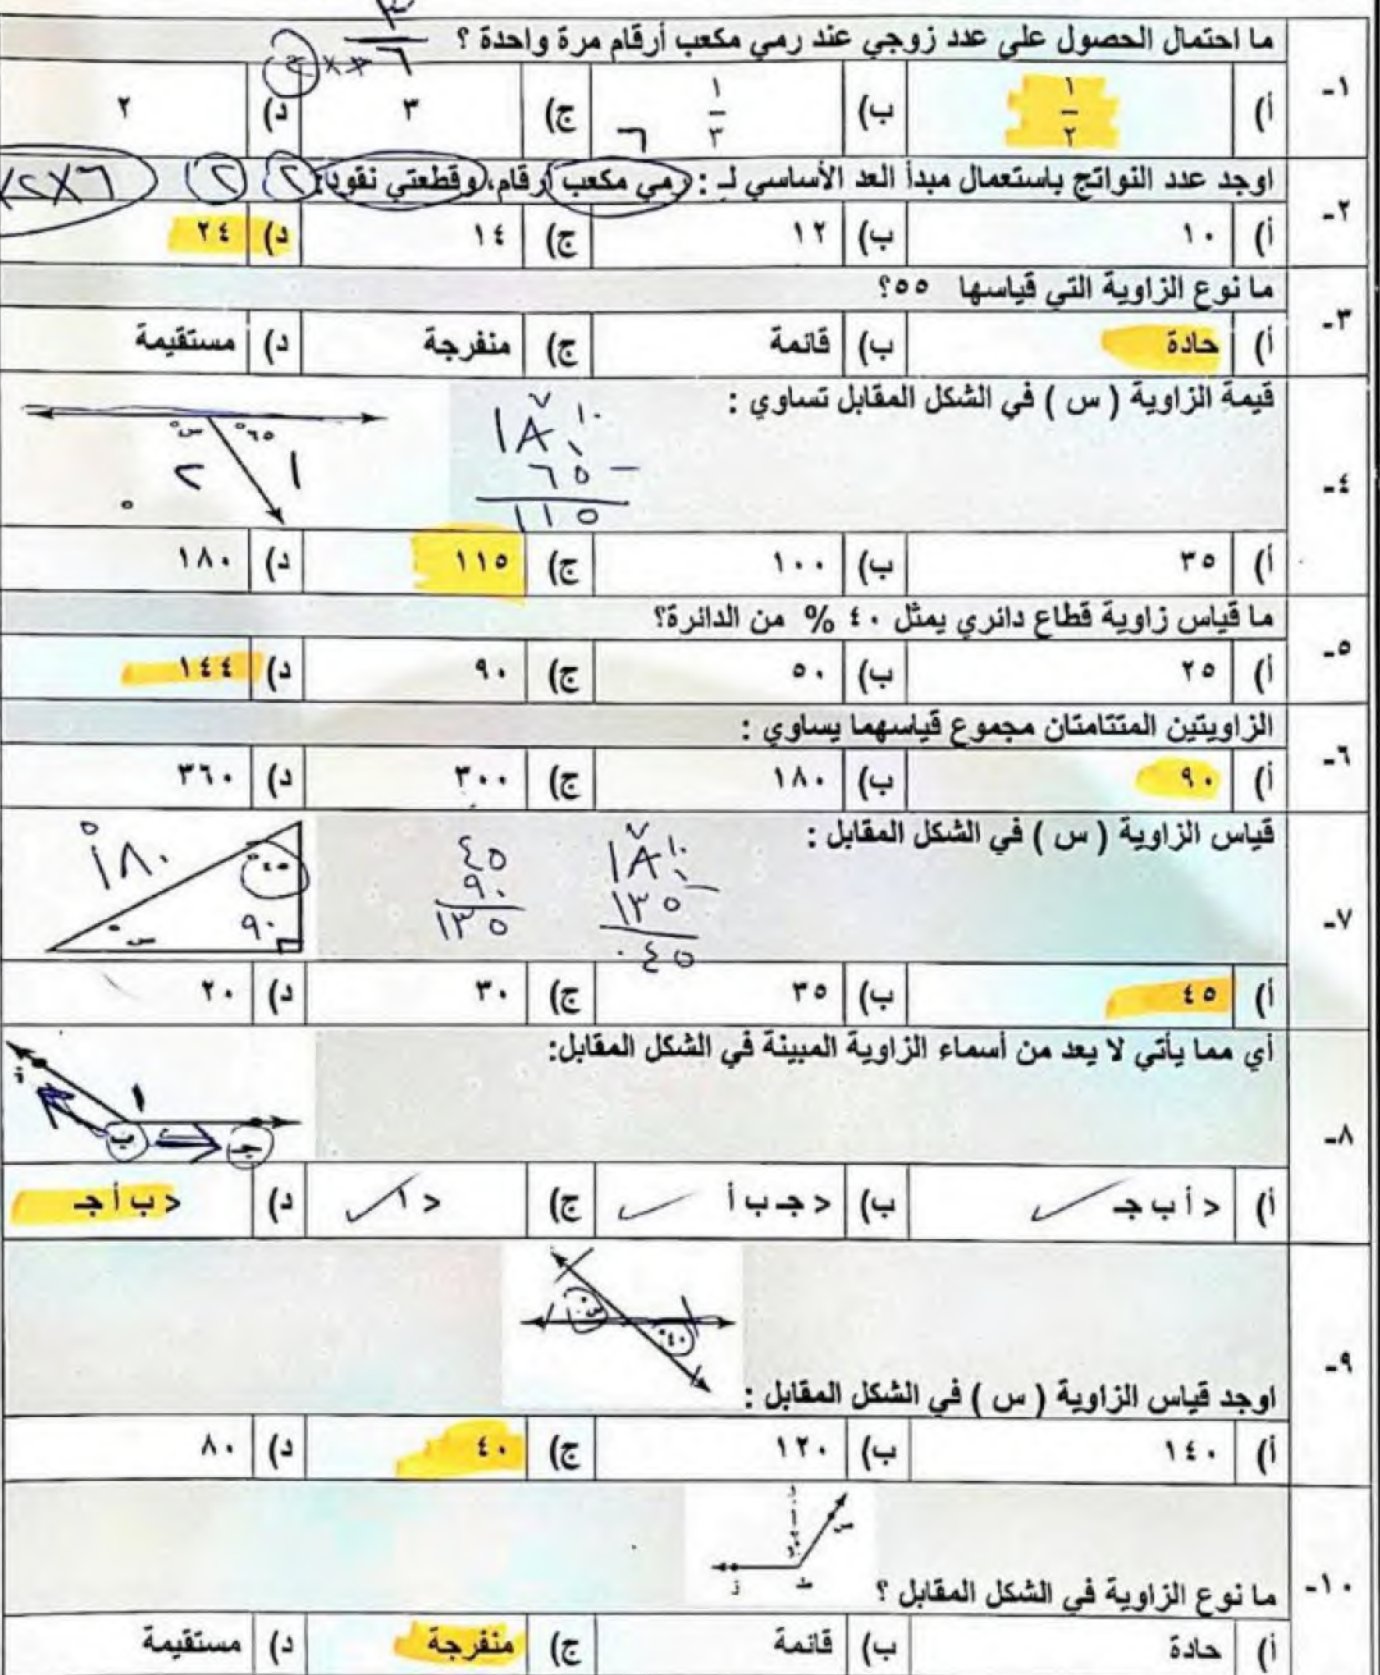 ١- ما احتمال الحصول على عدد زوجي عند رمي مكعب أرقام مرة واحدة ؟
أ) ١/٢ ب) ١/٣ ج) ٣ د) ٢
٦
٢- اوجد عدد النواتج باستعمال مبدأ العد الأساسي لـ : رمي مكعب أرقام، وقطعتي نقود: ٢ ٢ ٦×٢×
أ) ١٠ ب) ١٢ ج) ١٤ د) ٢٤
٣- ما نوع الزاوية التي قياسها ٥٥؟
أ) حادة ب) قائمة ج) منفرجة د) مستقيمة
٤- قيمة الزاوية ( س ) في الشكل المقابل تساوي :
٧ ١٠
١٨٠
٦٥ -
١١٥
س° ٦٥°
٢ ١
أ) ٣٥ ب) ١٠٠ ج) ١١٥ د) ١٨٠
٥- ما قياس زاوية قطاع دائري يمثل ٤٠ % من الدائرة؟
أ) ٢٥ ب) ٥٠ ج) ٩٠ د) ١٤٤
٦- الزاويتين المتتامتان مجموع قياسهما يساوي :
أ) ٩٠ ب) ١٨٠ ج) ٣٠٠ د) ٣٦٠
٧- قياس الزاوية ( س ) في الشكل المقابل :
٧ ١٠
١٨٠
١٣٥ -
٠٤٥
٤٥
٩٠
١٣٥
١٨٠°
٤٥°
س° ٩٠
أ) ٤٥ ب) ٣٥ ج) ٣٠ د) ٢٠
٨- أي مما يأتي لا يعد من أسماء الزاوية المبينة في الشكل المقابل:
١
ب جـ
أ) > أ ب جـ ب) > جـ ب أ ج) > ١ د) > ب أ جـ
٩-
س° ٤٠°
اوجد قياس الزاوية ( س ) في الشكل المقابل :
أ) ١٤٠ ب) ١٢٠ ج) ٤٠ د) ٨٠
١٠- ما نوع الزاوية في الشكل المقابل ؟
أ) حادة ب) قائمة ج) منفرجة د) مستقيمة